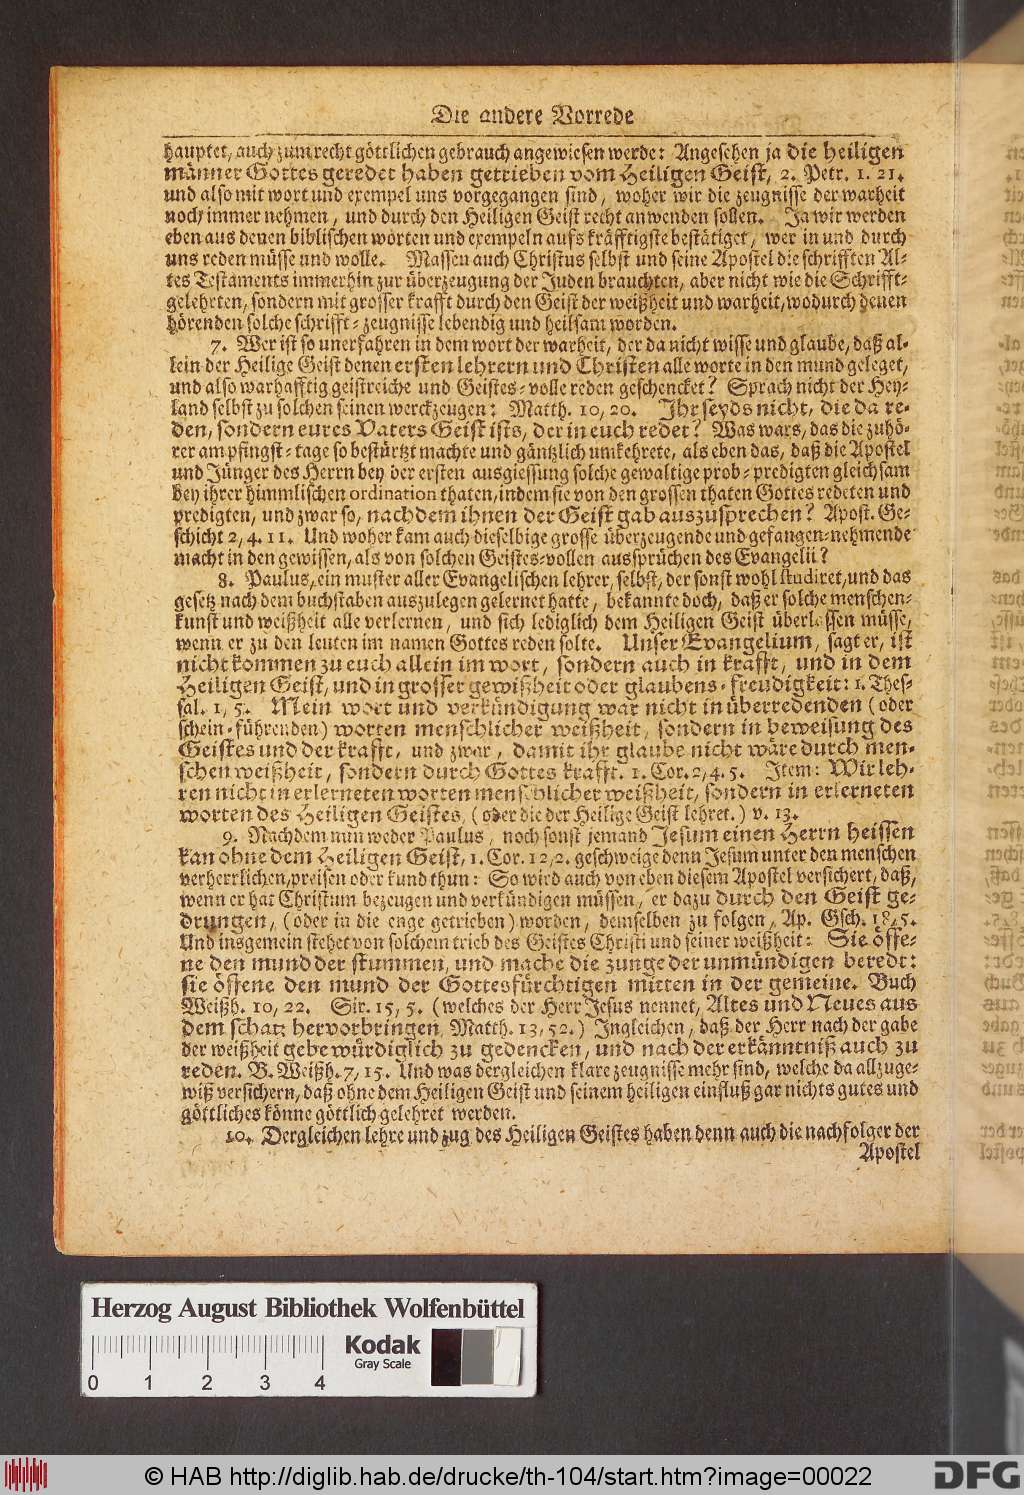 Die andere Vorrede
hauptet, auch zum recht göttlichen gebrauch angewiesen werde: Angesehen ja die heiligen
männer Gottes geredet haben getrieben vom Heiligen Geist, 2. Petr. 1. 21.
und also mit wort und exempel uns vorgegangen sind, woher wir die zeugnisse der warheit
noch immer nehmen, und durch den Heiligen Geist recht anwenden sollen. Ja wir werden
eben aus denen biblischen worten und exempeln aufs kräfftigste bestätiget, wer in und durch
uns reden müsse und wolle. Massen auch Christus selbst und seine Apostel die schrifften Al-
tes Testaments immerhin zur überzeugung der Juden brauchten, aber nicht wie die Schrifft-
gelehrten, sondern mit grosser krafft durch den Geist der weißheit und warheit, wodurch denen
hörenden solche schrifft-zeugnisse lebendig und heilsam worden.
7. Wer ist so unerfahren in dem wort der warheit, der da nicht wisse und glaube, daß al-
lein der Heilige Geist denen ersten lehrern und Christen alle worte in den mund geleget,
und also warhafftig geistreiche und Geistes-volle reden geschencket? Sprach nicht der Hey-
land selbst zu solchen seinen werckzeugen: Matth. 10, 20. Ihr seyds nicht, die da re-
den, sondern eures Vaters Geist ists, der in euch redet? Was wars, das die zuhö-
rer am pfingst-tage so bestürtzt machte und gäntzlich umkehrete, als eben das, daß die Apostel
und Jünger des Herrn bey der ersten ausgiessung solche gewaltige prob-predigten gleichsam
bey ihrer himmlischen ordination thaten, indem sie von den grossen thaten Gottes redeten und
predigten, und zwar so, nachdem ihnen der Geist gab auszusprechen? Apost. Ge-
schicht 2, 4. 11. Und woher kam auch dieselbige grosse überzeugende und gefangen-nehmende
macht in den gewissen, als von solchen Geistes-vollen aussprüchen des Evangelii?
8. Paulus, ein muster aller Evangelischen lehrer, selbst, der sonst wohl studiret, und das
gesetz nach dem buchstaben auszulegen gelernet hatte, bekannte doch, daß er solche menschen-
kunst und weißheit alle verlernen, und sich lediglich dem Heiligen Geist überlassen müsse,
wenn er zu den leuten im namen Gottes reden solte. Unser Evangelium, sagt er, ist
nicht kommen zu euch allein im wort, sondern auch in krafft, und in dem
Heiligen Geist, und in grosser gewißheit oder glaubens-freudigkeit: 1. Thes-
sal. 1, 5. Mein wort und verkündigung war nicht in überredenden (oder
schein-führenden) worten menschlicher weißheit, sondern in beweisung des
Geistes und der krafft, und zwar, damit ihr glaube nicht wäre durch men-
schen weißheit, sondern durch Gottes krafft. 1. Cor. 2, 4. 5. Item: Wir leh-
ren nicht in erlerneten worten menschlicher weißheit, sondern in erlerneten
worten des Heiligen Geistes, (oder die der Heilige Geist lehret.) v. 13.
9. Nachdem nun weder Paulus, noch sonst jemand Jesum einen Herrn heissen
kan ohne dem Heiligen Geist, 1. Cor. 12, 2. geschweige denn Jesum unter den menschen
verherrlichen, preisen oder kund thun: So wird auch von eben diesem Apostel versichert, daß,
wenn er hat Christum bezeugen und verkündigen müssen, er dazu durch den Geist ge-
drungen, (oder in die enge getrieben) worden, demselben zu folgen, Ap. Gsch. 18, 5.
Und insgemein stehet von solchem trieb des Geistes Christi und seiner weißheit: Sie öffe-
ne den mund der stummen, und mache die zunge der unmündigen beredt:
sie öffene den mund der Gottesfürchtigen mitten in der gemeine. Buch
Weißh. 10, 22. Sir. 15, 5. (welches der Herr Jesus nennet, Altes und Neues aus
dem schatz hervorbringen, Matth. 13, 52.) Ingleichen, daß der Herr nach der gabe
der weißheit gebe würdiglich zu gedencken, und nach der erkänntniß auch zu
reden. B. Weißh. 7, 15. Und was dergleichen klare zeugnisse mehr sind, welche da allzuge-
wiß versichern, daß ohne dem Heiligen Geist und seinem heiligen einfluß gar nichts gutes und
göttliches könne göttlich gelehret werden.
10. Dergleichen lehre und zug des Heiligen Geistes haben denn auch die nachfolger der
Apostel
Herzog August Bibliothek Wolfenbüttel
Kodak
Gray Scale
0 1 2 3 4
© HAB http://diglib.hab.de/drucke/th-104/start.htm?image=00022
DFG